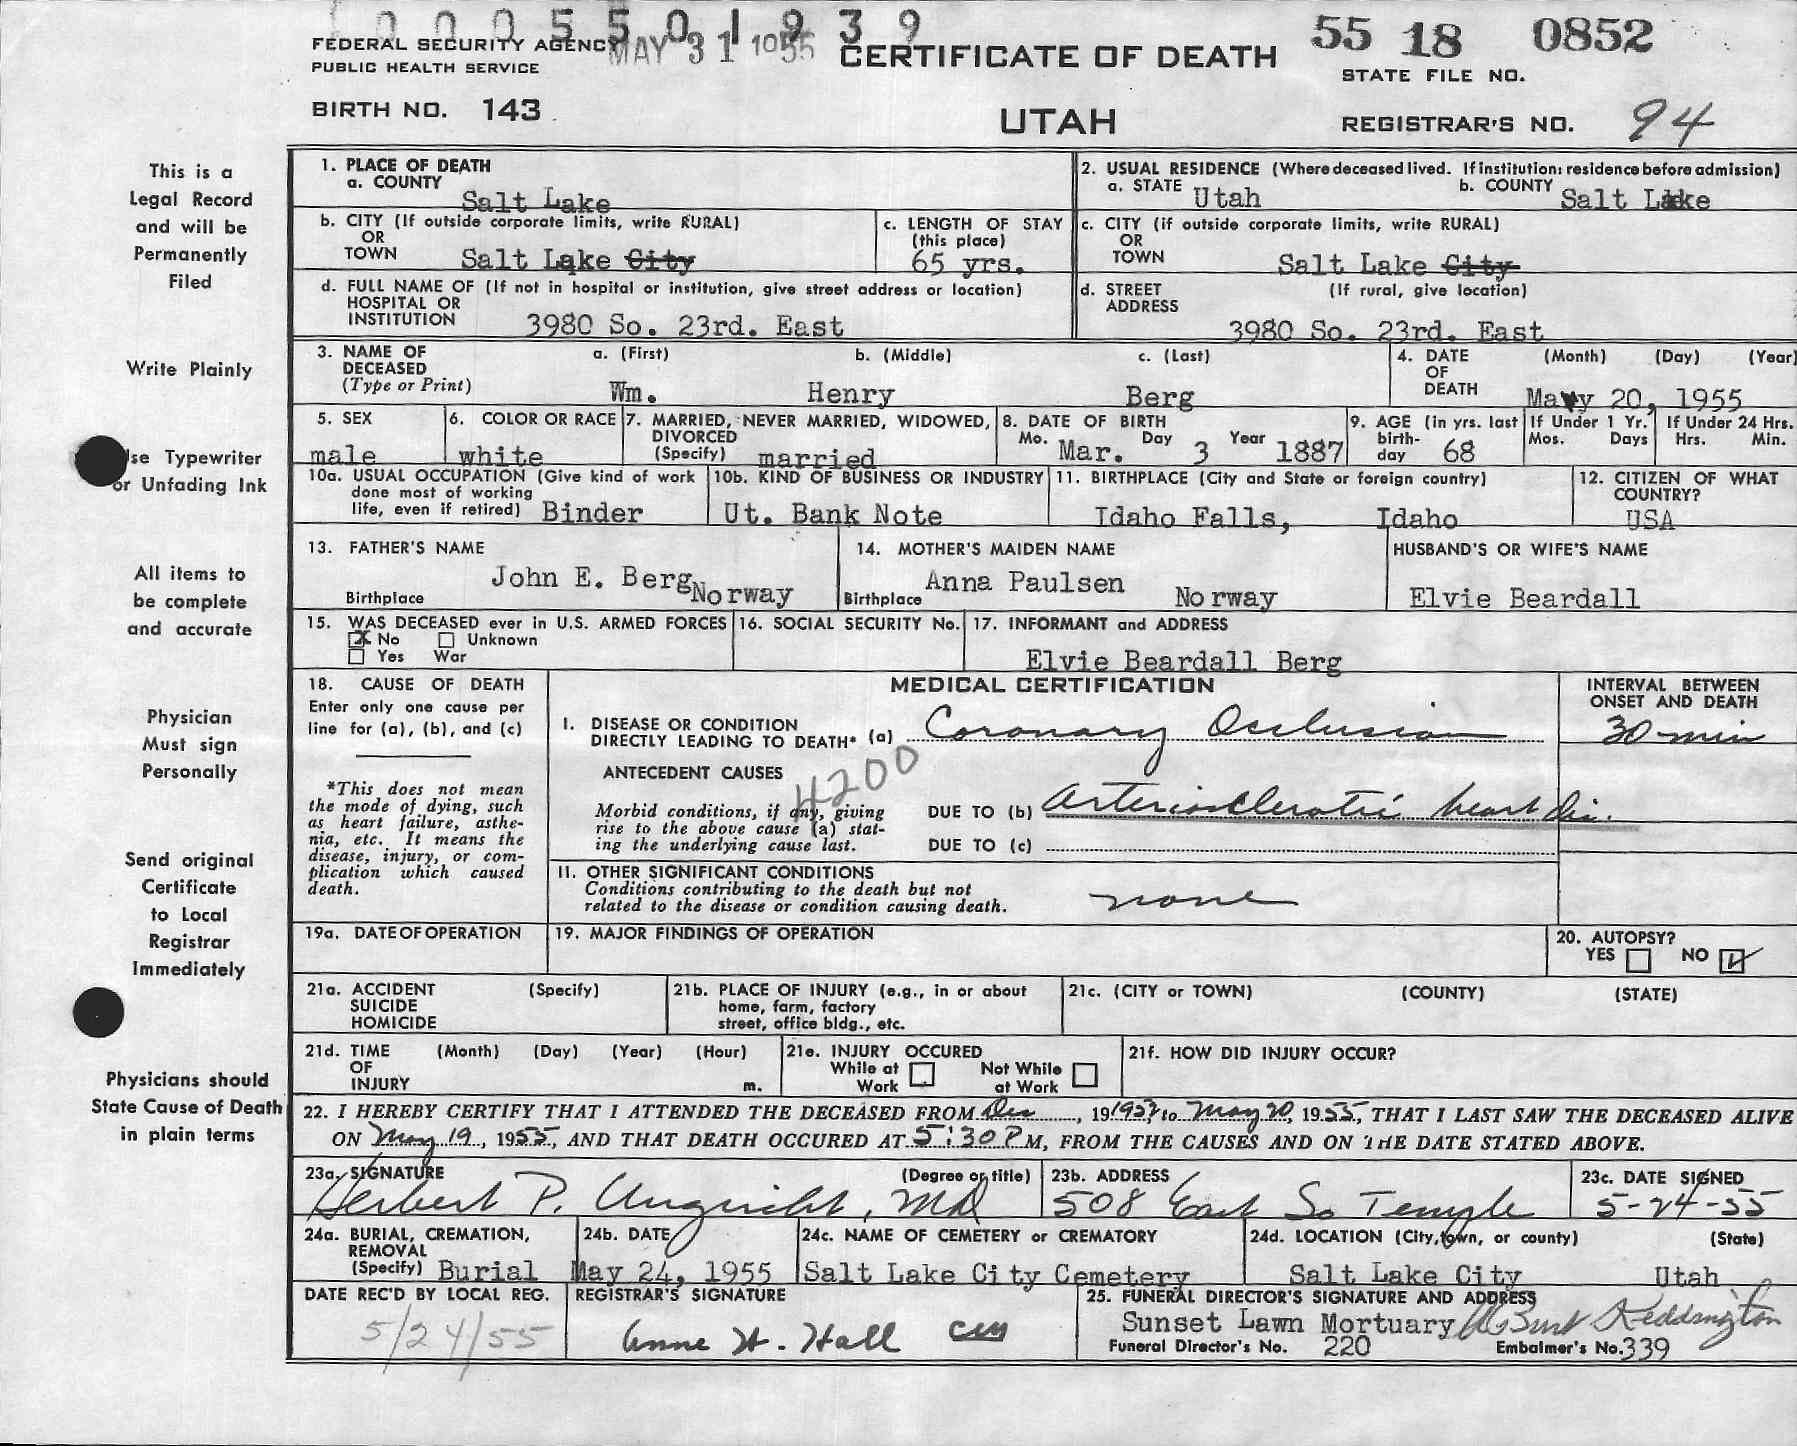 0005501939
FEDERAL SECURITY AGENCY MAY 31 1955 CERTIFICATE OF DEATH 55 18 0852
PUBLIC HEALTH SERVICE STATE FILE NO.
BIRTH NO. 143 UTAH REGISTRAR'S NO. 94
This is a
Legal Record
and will be
Permanently
Filed
Write Plainly
Use Typewriter
or Unfading Ink
All items to
be complete
and accurate
Physician
Must sign
Personally
Send original
Certificate
to Local
Registrar
Immediately
Physicians should
State Cause of Death
in plain terms
1. PLACE OF DEATH
a. COUNTY
Salt Lake
2. USUAL RESIDENCE (Where deceased lived. If institution: residence before admission)
a. STATE Utah b. COUNTY Salt Lake
b. CITY (If outside corporate limits, write RURAL)
OR
TOWN Salt Lake City
c. LENGTH OF STAY
(this place)
65 yrs.
c. CITY (if outside corporate limits, write RURAL)
OR
TOWN Salt Lake City
d. FULL NAME OF (If not in hospital or institution, give street address or location)
HOSPITAL OR
INSTITUTION 3980 So. 23rd. East
d. STREET (If rural, give location)
ADDRESS
3980 So. 23rd. East
3. NAME OF a. (First) b. (Middle) c. (Last)
DECEASED
(Type or Print) Wm. Henry Berg
4. DATE (Month) (Day) (Year)
OF
DEATH May 20, 1955
5. SEX
male
6. COLOR OR RACE
white
7. MARRIED, NEVER MARRIED, WIDOWED,
DIVORCED
(Specify) married
8. DATE OF BIRTH
Mo. Day Year
Mar. 3 1887
9. AGE (in yrs. last
birth-
day 68
If Under 1 Yr.
Mos. Days
If Under 24 Hrs.
Hrs. Min.
10a. USUAL OCCUPATION (Give kind of work
done most of working
life, even if retired) Binder
10b. KIND OF BUSINESS OR INDUSTRY
Ut. Bank Note
11. BIRTHPLACE (City and State or foreign country)
Idaho Falls, Idaho
12. CITIZEN OF WHAT
COUNTRY?
USA
13. FATHER'S NAME
John E. Berg
Birthplace Norway
14. MOTHER'S MAIDEN NAME
Anna Paulsen
Birthplace Norway
HUSBAND'S OR WIFE'S NAME
Elvie Beardall
15. WAS DECEASED ever in U.S. ARMED FORCES
X No Unknown
Yes War
16. SOCIAL SECURITY No.
17. INFORMANT and ADDRESS
Elvie Beardall Berg
18. CAUSE OF DEATH
Enter only one cause per
line for (a), (b), and (c)
*This does not mean
the mode of dying, such
as heart failure, asthe-
nia, etc. It means the
disease, injury, or com-
plication which caused
death.
MEDICAL CERTIFICATION
INTERVAL BETWEEN
ONSET AND DEATH
I. DISEASE OR CONDITION
DIRECTLY LEADING TO DEATH* (a) Coronary Occlusion 30 min
ANTECEDENT CAUSES
4200
Morbid conditions, if any, giving
rise to the above cause (a) stat-
ing the underlying cause last.
DUE TO (b) Arteriosclerotic heart dis.
DUE TO (c)
II. OTHER SIGNIFICANT CONDITIONS
Conditions contributing to the death but not
related to the disease or condition causing death.
none
19a. DATE OF OPERATION
19. MAJOR FINDINGS OF OPERATION
20. AUTOPSY?
YES NO
21a. ACCIDENT (Specify)
SUICIDE
HOMICIDE
21b. PLACE OF INJURY (e.g., in or about
home, farm, factory
street, office bldg., etc.
21c. (CITY or TOWN) (COUNTY) (STATE)
21d. TIME (Month) (Day) (Year) (Hour)
OF
INJURY m.
21e. INJURY OCCURED
While at Work
Not While at Work
21f. HOW DID INJURY OCCUR?
22. I HEREBY CERTIFY THAT I ATTENDED THE DECEASED FROM Dec, 19 1952, to May 20, 1955, THAT I LAST SAW THE DECEASED ALIVE
ON May 19, 1955, AND THAT DEATH OCCURED AT 5:30 P M, FROM THE CAUSES AND ON THE DATE STATED ABOVE.
23a. SIGNATURE (Degree or title)
Herbert P. Ungricht, MD
23b. ADDRESS
508 East So Temple
23c. DATE SIGNED
5-24-55
24a. BURIAL, CREMATION,
REMOVAL
(Specify) Burial
24b. DATE
May 24, 1955
24c. NAME OF CEMETERY or CREMATORY
Salt Lake City Cemetery
24d. LOCATION (City, town, or county) (State)
Salt Lake City Utah
DATE REC'D BY LOCAL REG.
5/24/55
REGISTRAR'S SIGNATURE
Anne H. Hall
25. FUNERAL DIRECTOR'S SIGNATURE AND ADDRESS
Sunset Lawn Mortuary Burt Keddington
Funeral Director's No. 220 Embalmer's No. 339